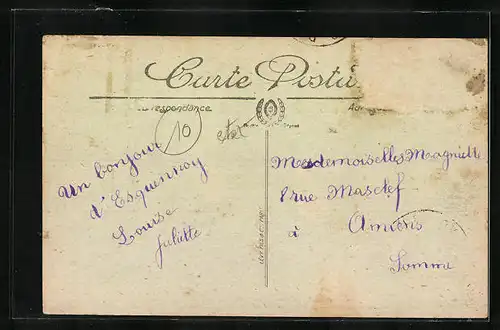 Carte Posta
Correspondance
10
Un bonjour
d'Esquennoy
Louise
Juliette
Mesdemoiselles Magniette
8 rue Masclef
à Amiens
Somme